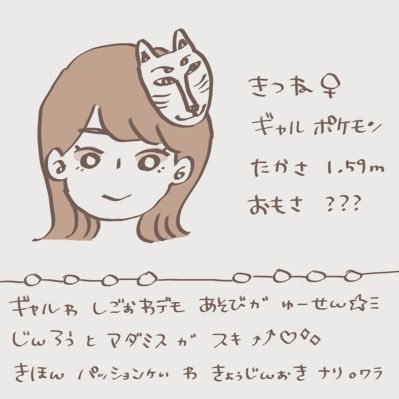 きつね♀
ギャル ポケモン
たかさ 1.59m
おもさ ???
ギャルわ しごおわデモ あそびが ゆーせん☆ミ
じんろうと マダミスが スキ⤴⤴♡◇◇
きほん パッションけい わ きょうじんおき ナリ。ワラ